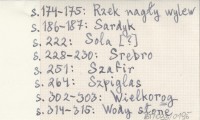 s. 174-175: Rzek nagły wylew
s. 186-187: Sardyk
s. 222: Sola [?]
s. 228-230: Srebro
s. 251: Szafir
s. 264: Szpiglas
s. 302-303: Wielkoróg
s. 314-315: Wody słone